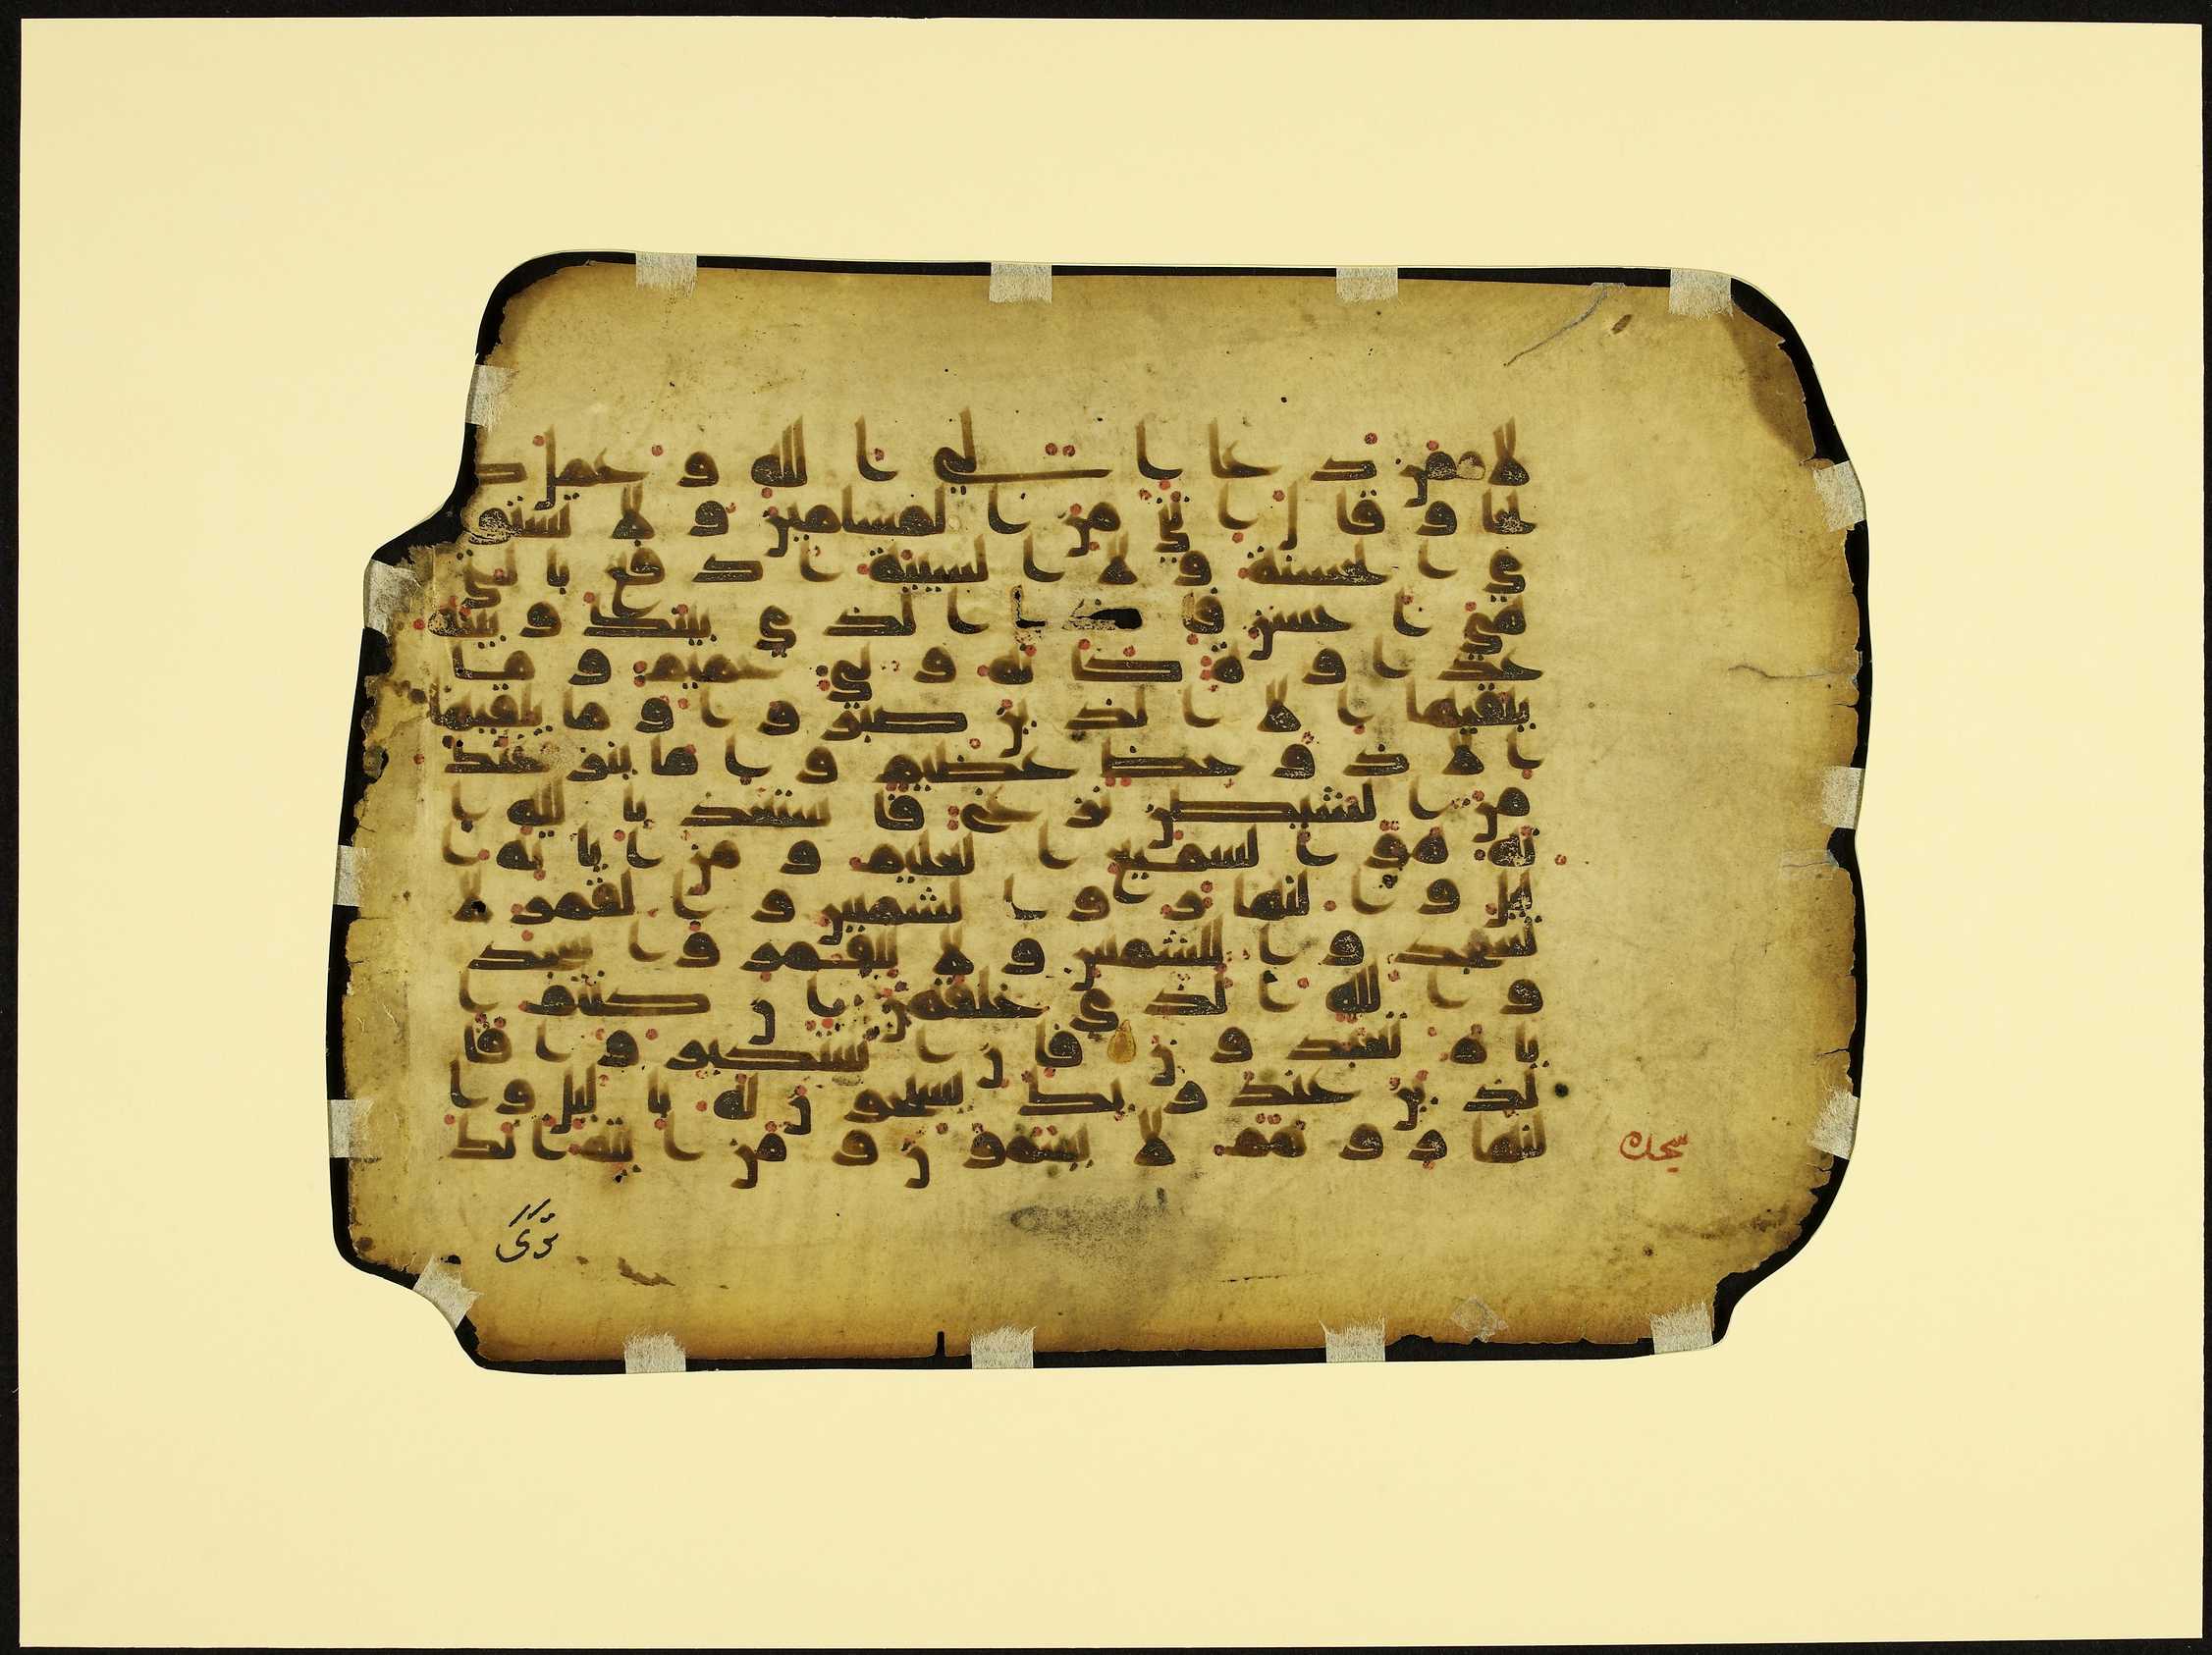 لا ممن دعا الى الله وعمل ص
لحا وقال اننى من المسلمين ولا تستو
ى الحسنة ولا السيئة ادفع بالتى
هى احسن فاذا الذى بينك وبينه
عداوة كانه ولى حميم وما
يلقيها الا الذين صبروا وما يلقيها
الا ذو حظ عظيم واما ينزغنك
من الشيطن نزغ فاستعذ بالله ا
نه هو السميع العليم ومن ايا ته ا
ليل والنهار والشمس والقمر لا
تسجدوا للشمس ولا للقمر واسجد
وا لله الذى خلقهن ان كنتم ا
ياه تعبدون فان استكبروا فا
لذين عند ربك يسبحون له باليل وا
لنهار وهم لا يسئمون ومن ايته انك
سجده
ترى